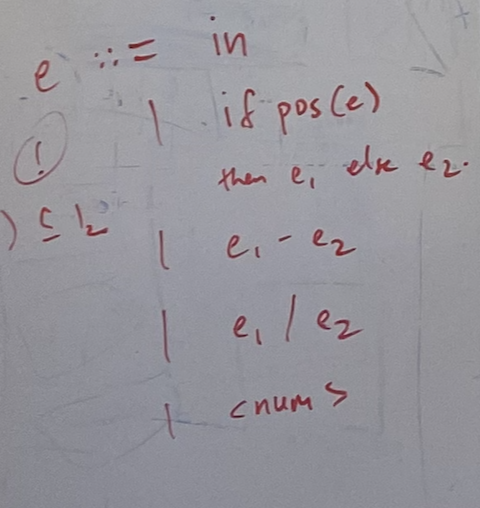 e ::= in
| if pos(e)
(!) then e₁ else e₂.
) ⊆ I₂
| e₁ - e₂
| e₁ / e₂
| <num>